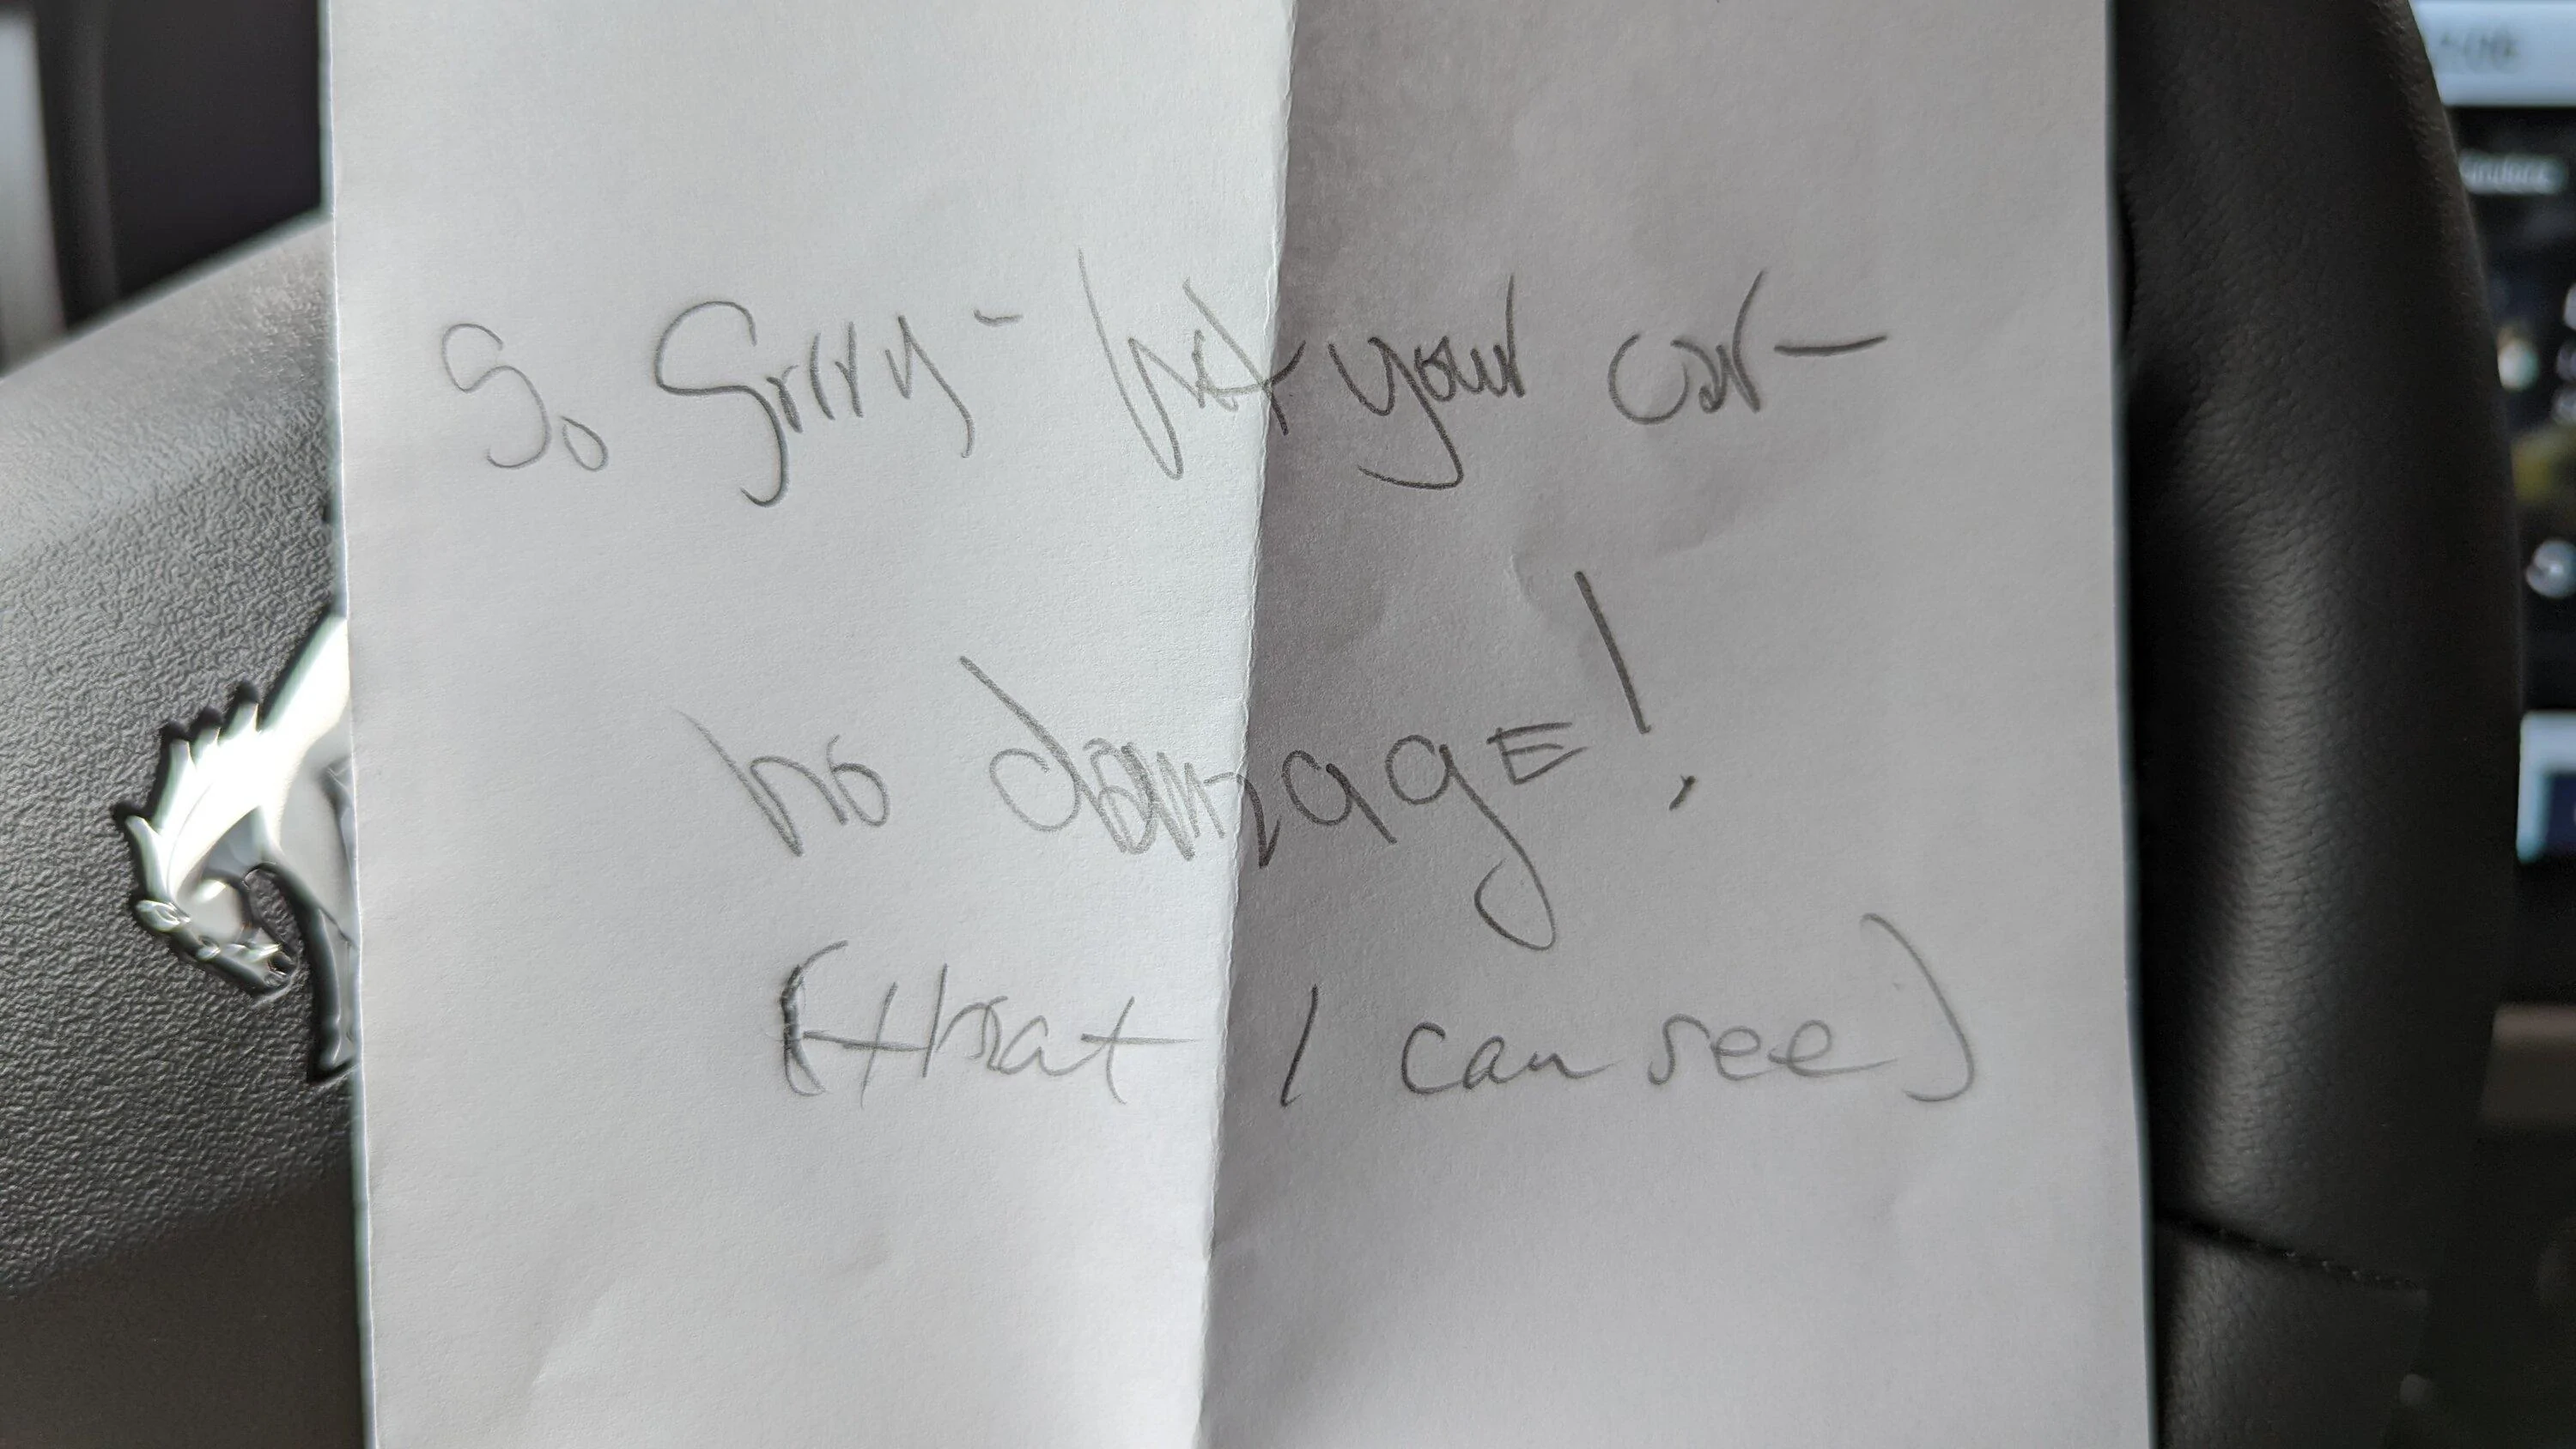 So Sorry - hit your car -
no damage!
(that I can see)